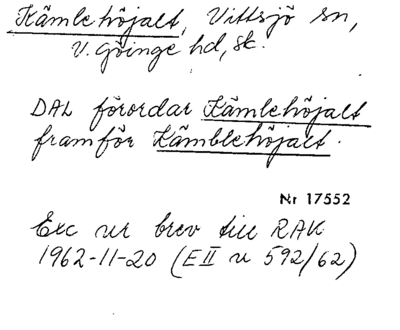 Kämlehöjalt, Vittsjö sn,
V. Göinge hd, sk.
DAL förordar Kämlehöjalt
framför Kämblehöjalt.
Nr 17552
Exc ur brev till RAK
1962-11-20 (E II u 592/62)